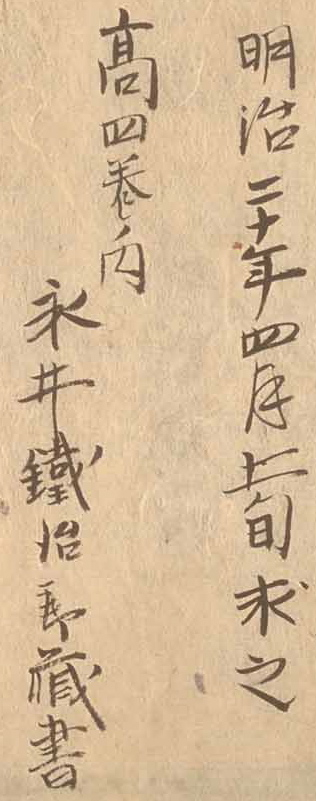 明治二十年四月上旬求之
高四巻内
永井鐵治郎藏書